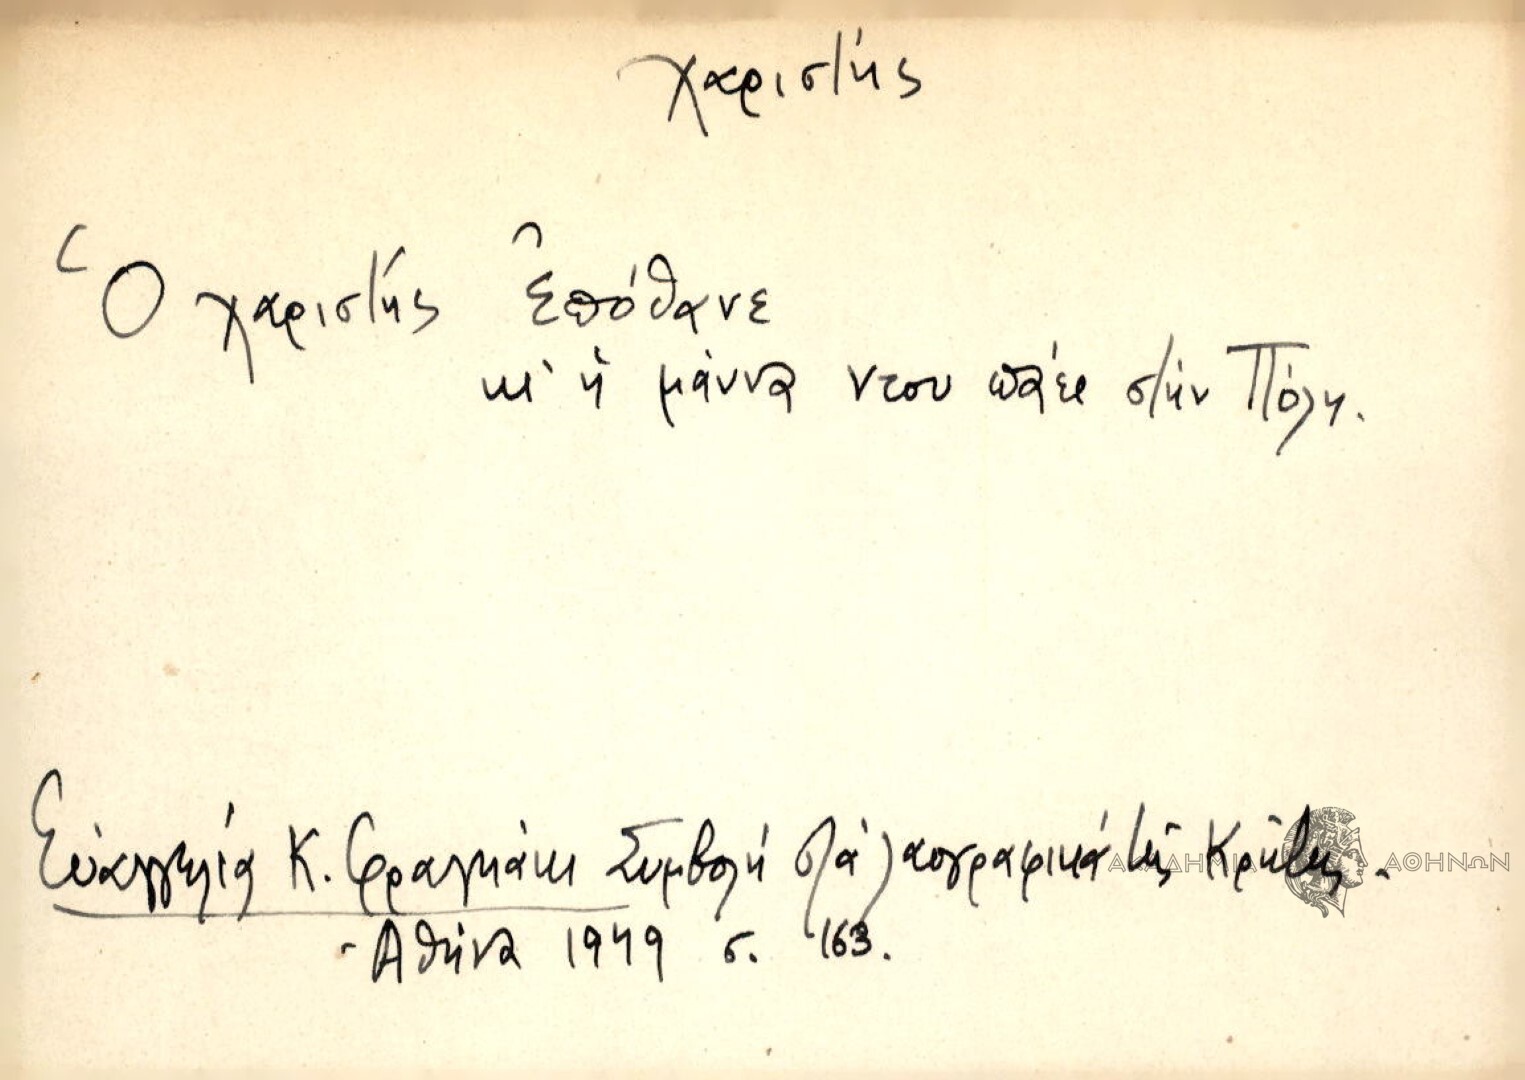 χαριστής
Ὁ χαριστής ἐπόθανε
κι' ἡ μάννα ντου πάει στήν Πόλη.
Εὐαγγελία Κ. Φραγκάκι Συμβολή στά λαογραφικά τῆς Κρήτης.
ΑΚΑΔΗΜΙΑ ΑΘΗΝΩΝ
Ἀθήνα 1949 σ. 163.